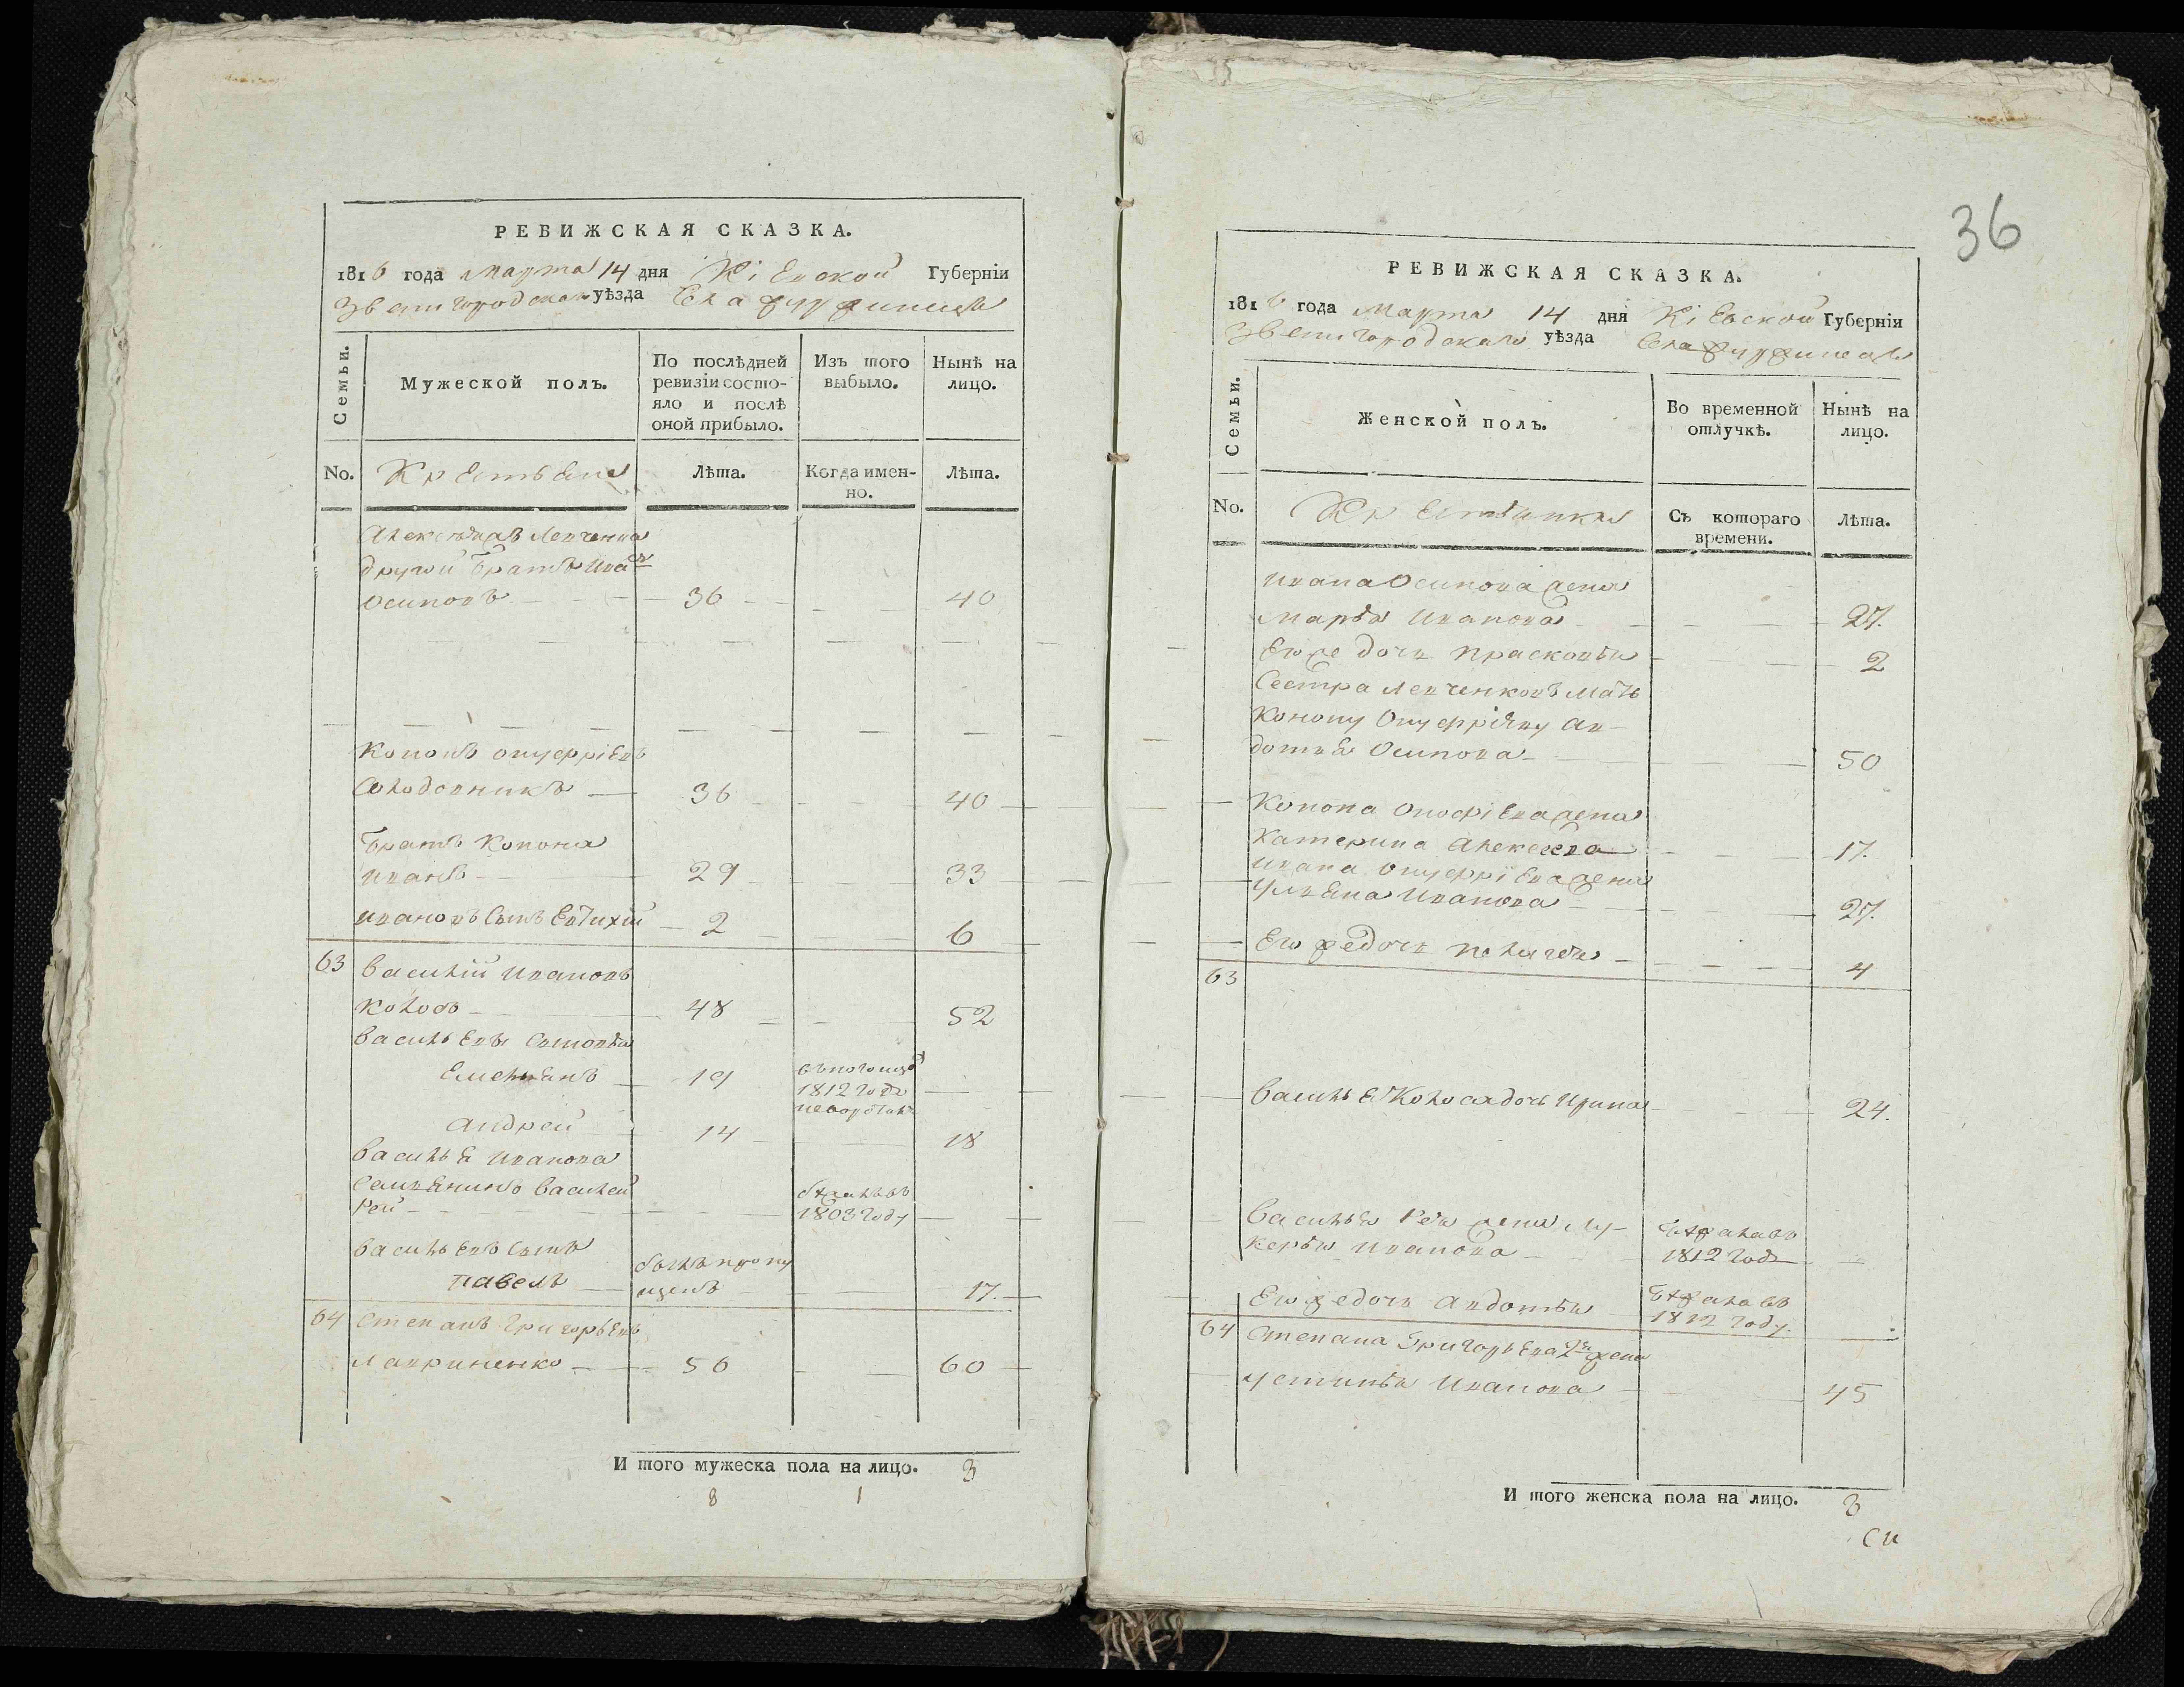 РЕВИЖСКАЯ СКАЗКА.
1816 года марта 14 дня Кіевской Губерніи
Звенигородскаго уѣзда Села
Семьи.
Мужеской полъ.
По послѣдней ревизіи состо-
яло и послѣ
оной прибыло.
Изъ того
выбыло.
Нынѣ на
лицо.
No. Крестьяне Лѣта. Когда имен-
но. Лѣта.
Александра Левченка
другой братъ Иванъ
Осиповъ 36 40
Кононъ Онуфріевъ
Солодовникъ 36 40
братъ Конона
Иванъ 29 33
Ивановъ Сынъ Евтихій 2 6
63 Василій Ивановъ
Колосъ 48 52
Васильевы Сыновья
Емельянъ 19 1812 года
Андрей 14 18
Василья Иванова
Василей
Рей 1803 году
Васильевъ Сынъ
Павелъ былъ пропу
щенъ 17.
64 Степанъ Григорьевъ
Лавриненко 56 60
И того мужеска пола на лицо. 3
8 1
36
РЕВИЖСКАЯ СКАЗКА.
1816 года Марта 14 дня Кіевской Губерніи
Звенигородскаго уѣзда Села
Семьи.
Женской полъ.
Во временной
отлучкѣ.
Нынѣ на
лицо.
No. Крестьянки Съ котораго
времени. Лѣта.
Ивана Осипова жена
Марья Иванова 27.
Его же дочь Прасковья 2
Сестра Левченковъ мать
Конону Онуфріеву Ав-
дотья Осипова 50
Конона Онофріева жена
Катерина Алексеева 17.
Ивана Онуфріева жена
Ульяна Иванова 27.
Его же дочь Пелагея 4
63
Василья Колоса дочь Ирина 24.
Василья Рея жена Лу-
керья Иванова бѣжала въ
1812 годе
Его же дочь Авдотья бѣжала въ
1812 году.
64 Степана Григорьева 2я жена
Устинья Иванова 45
И того женска пола на лицо. 8